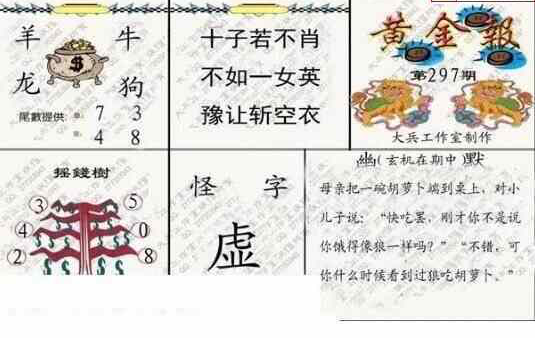 羊 牛
$
龙 狗
尾數提供: 7 3
4 8
十子若不肖
不如一女英
豫让斩空衣
黄金報
第297期
大兵工作室制作
摇錢樹
3 5
4 0
2 8
怪 字
虚
幽(玄机在期中)默
母亲把一碗胡萝卜端到桌上,对小
儿子说:“快吃罢,刚才你不是说
你饿得像狼一样吗?”“不错,可
你什么时候看到过狼吃胡萝卜。”